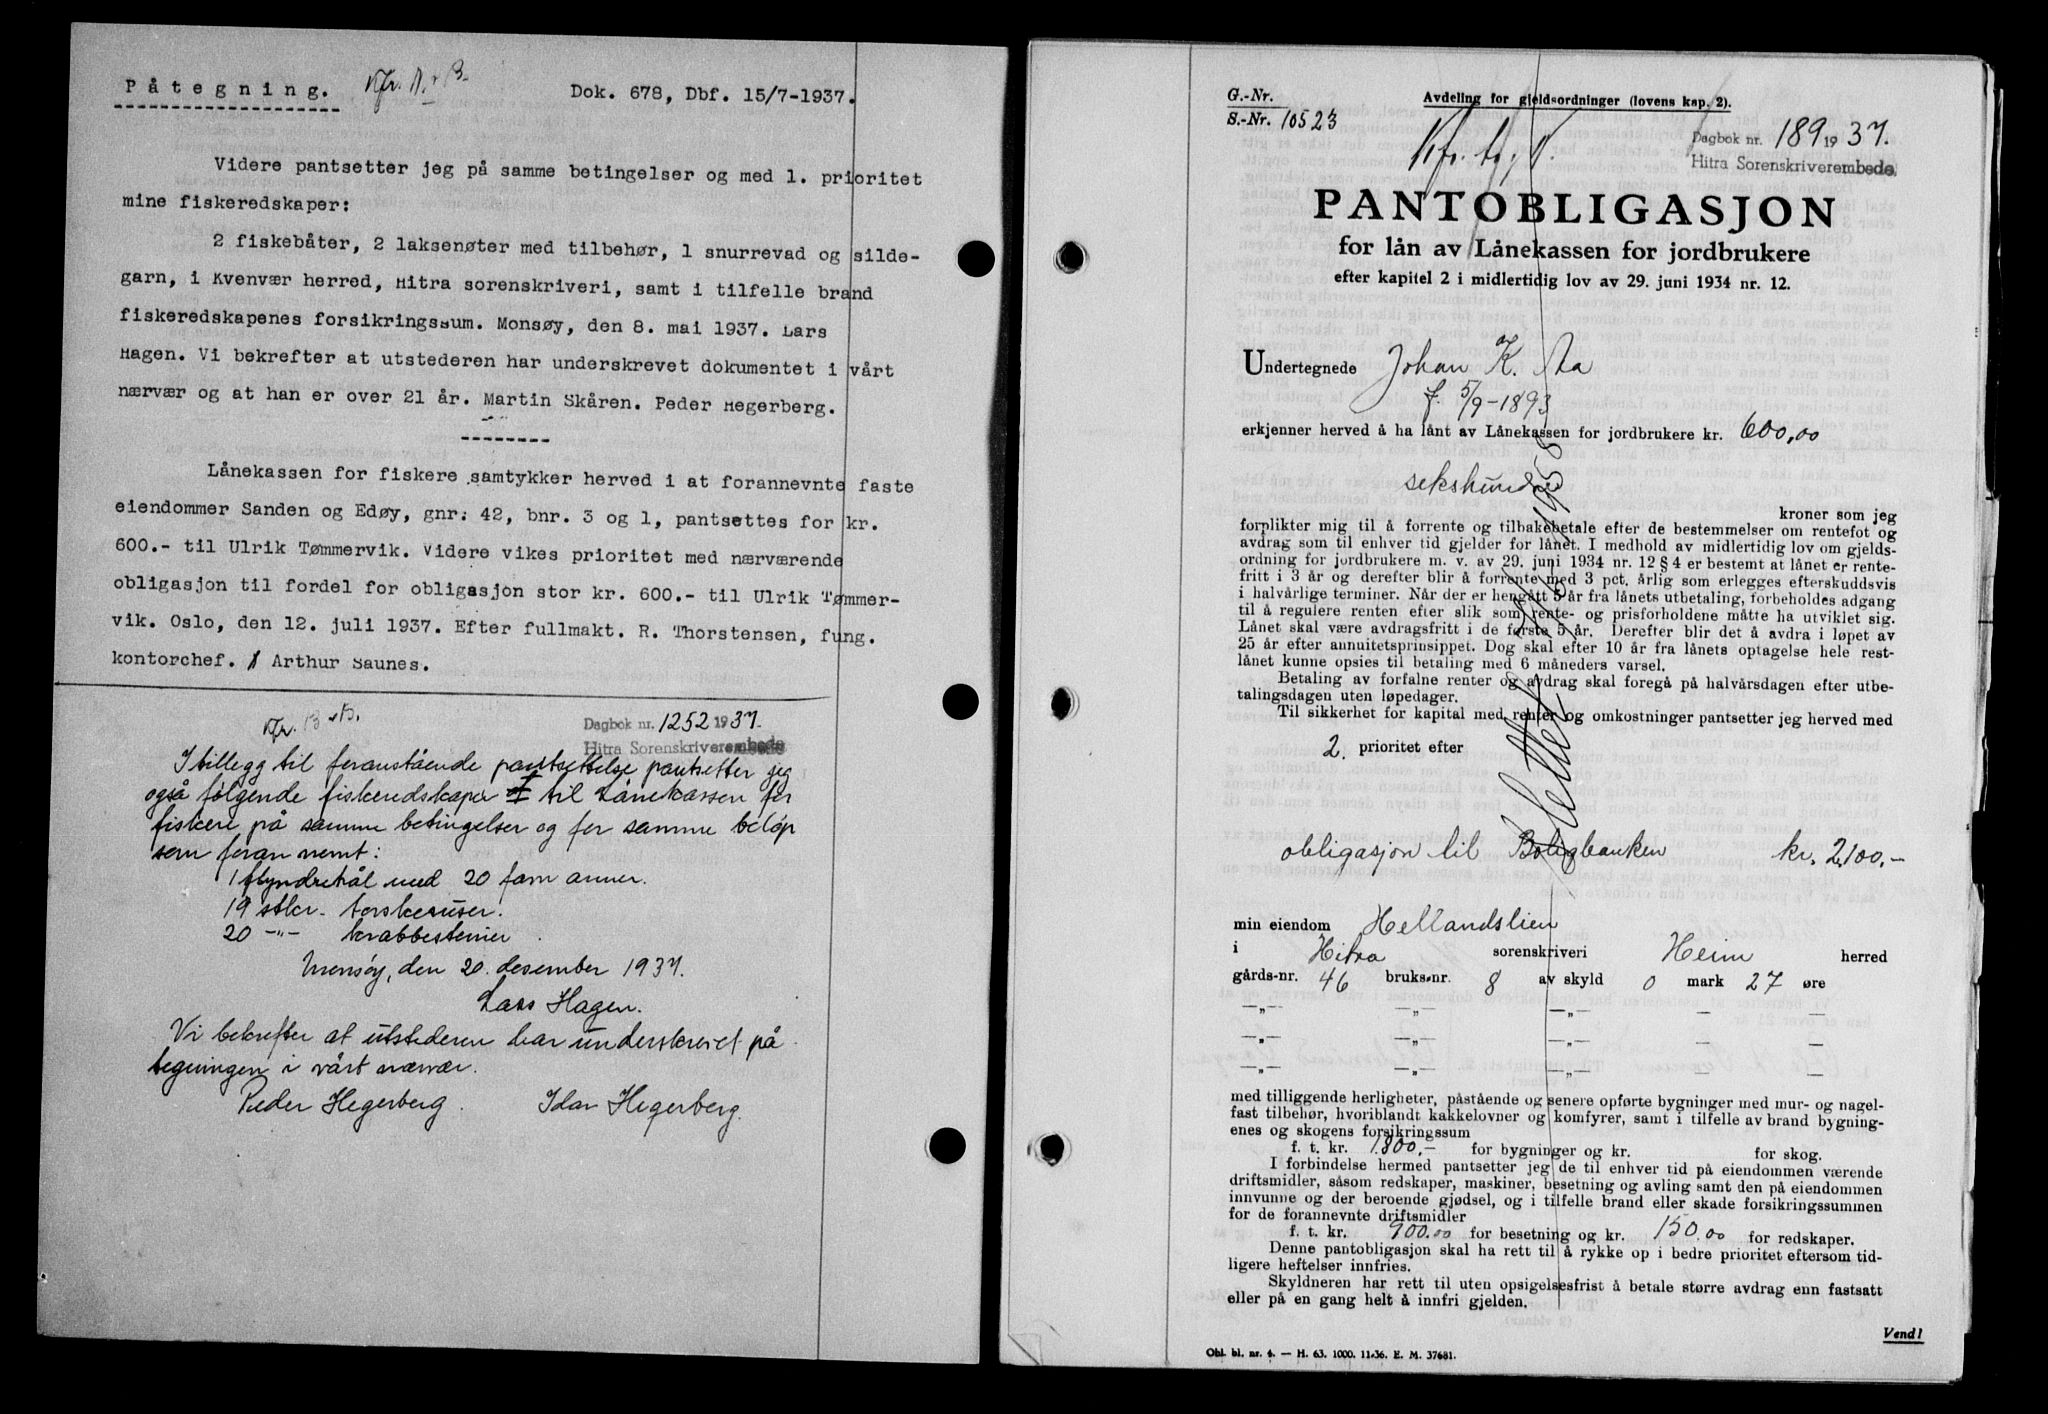 Påtegning. Kfr. A. B.
Dok. 678, Dbf. 15/7-1937.
Videre pantsetter jeg på samme betingelser og med 1. prioritet
mine fiskeredskaper:
2 fiskebåter, 2 laksenøter med tilbehør, 1 snurrevad og silde-
garn, i Kvenvær herred, Hitra sorenskriveri, samt i tilfelle brand
fiskeredskapenes forsikringssum. Monsøy, den 8. mai 1937. Lars
Hagen. Vi bekrefter at utstederen har underskrevet dokumentet i vårt
nærvær og at han er over 21 år. Martin Skåren. Peder Hegerberg.
Lånekassen for fiskere samtykker herved i at forannevnte faste
eiendommer Sanden og Edøy, gnr. 42, bnr. 3 og 1, pantsettes for kr.
600.- til Ulrik Tømmervik. Videre vikes prioritet med nærværende
obligasjon til fordel for obligasjon stor kr. 600.- til Ulrik Tømmer-
vik. Oslo, den 12. juli 1937. Efter fullmakt. R. Thorstensen, fung.
kontorchef. / Arthur Saunes.
Kfr. B
Dagbok nr. 1252 1937.
Hitra Sorenskriverembede
I tillegg til foranstående pantsettelse pantsetter jeg
også følgende fiskeredskaper til Lånekassen for
fiskere på samme betingelser og for samme beløp
som foran nevnt:
1 flyndretrål med 20 favn armer.
19 stkr. torskeruser.
20 -"- krabbesteiner.
Monsøy, den 20. desember 1937.
Lars Hagen.
Vi bekrefter at utstederen har underskrevet på
tegningen i vårt nærvær.
Peder Hegerberg. Idar Hegerberg.
G.-Nr.
S.-Nr. 10523
Avdeling for gjeldsordninger (lovens kap. 2).
Dagbok nr. 189 1937.
Hitra Sorenskriverembede
PANTOBLIGASJON
for lån av Lånekassen for jordbrukere
efter kapitel 2 i midlertidig lov av 29. juni 1934 nr. 12.
Undertegnede Johan K. Aa
f. 5/9-1893
erkjenner herved å ha lånt av Lånekassen for jordbrukere kr. 600,00
sekshundre
kroner som jeg
forplikter mig til å forrente og tilbakebetale efter de bestemmelser om rentefot og
avdrag som til enhver tid gjelder for lånet. I medhold av midlertidig lov om gjelds-
ordning for jordbrukere m. v. av 29. juni 1934 nr. 12 § 4 er bestemt at lånet er rente-
fritt i 3 år og derefter blir å forrente med 3 pct. årlig som erlegges efterskuddsvis
i halvårlige terminer. Når der er hengått 5 år fra lånets utbetaling, forbeholdes adgang
til å regulere renten efter slik som rente- og prisforholdene måtte ha utviklet sig.
Lånet skal være avdragsfritt i de første 5 år. Derefter blir det å avdra i løpet av
25 år efter annuitetsprinsippet. Dog skal efter 10 år fra lånets optagelse hele rest-
lånet kunne opsies til betaling med 6 måneders varsel.
Betaling av forfalne renter og avdrag skal foregå på halvårsdagen efter utbe-
talingsdagen uten løpedager.
Til sikkerhet for kapital med renter og omkostninger pantsetter jeg herved med
2. prioritet efter
Slettet
obligasjon til Boligbanken kr. 2,100,-
min eiendom Hellandslien
i Hitra sorenskriveri Heim herred
gårds-nr. 46 bruks-nr. 8 av skyld 0 mark 27 øre
-"- -"- -"- - -
-"- -"- -"- - -
-"- -"- -"- - -
med tilliggende herligheter, påstående og senere opførte bygninger med mur- og nagel-
fast tilbehør, hvoriblandt kakkelovner og komfyrer, samt i tilfelle av brand bygning-
enes og skogens forsikringssum
f. t. kr. 1.800,- for bygninger og kr. for skog.
I forbindelse hermed pantsetter jeg de til enhver tid på eiendommen værende
driftsmidler, såsom redskaper, maskiner, besetning og avling samt den på eiendommen
innvunne og der beroende gjødsel, og i tilfelle brand eller skade forsikringssummen
for de forannevnte driftsmidler
f. t. kr. 900.00 for besetning og kr. 150.00 for redskaper.
Denne pantobligasjon skal ha rett til å rykke op i bedre prioritet eftersom tid-
ligere heftelser innfries.
Skyldneren har rett til uten opsigelsesfrist å betale større avdrag enn fastsatt
eller på en gang helt å innfri gjelden.
Vend!
Obl. bl. nr. 4. — H. 63. 1000. 11-36. E. M. 37681.